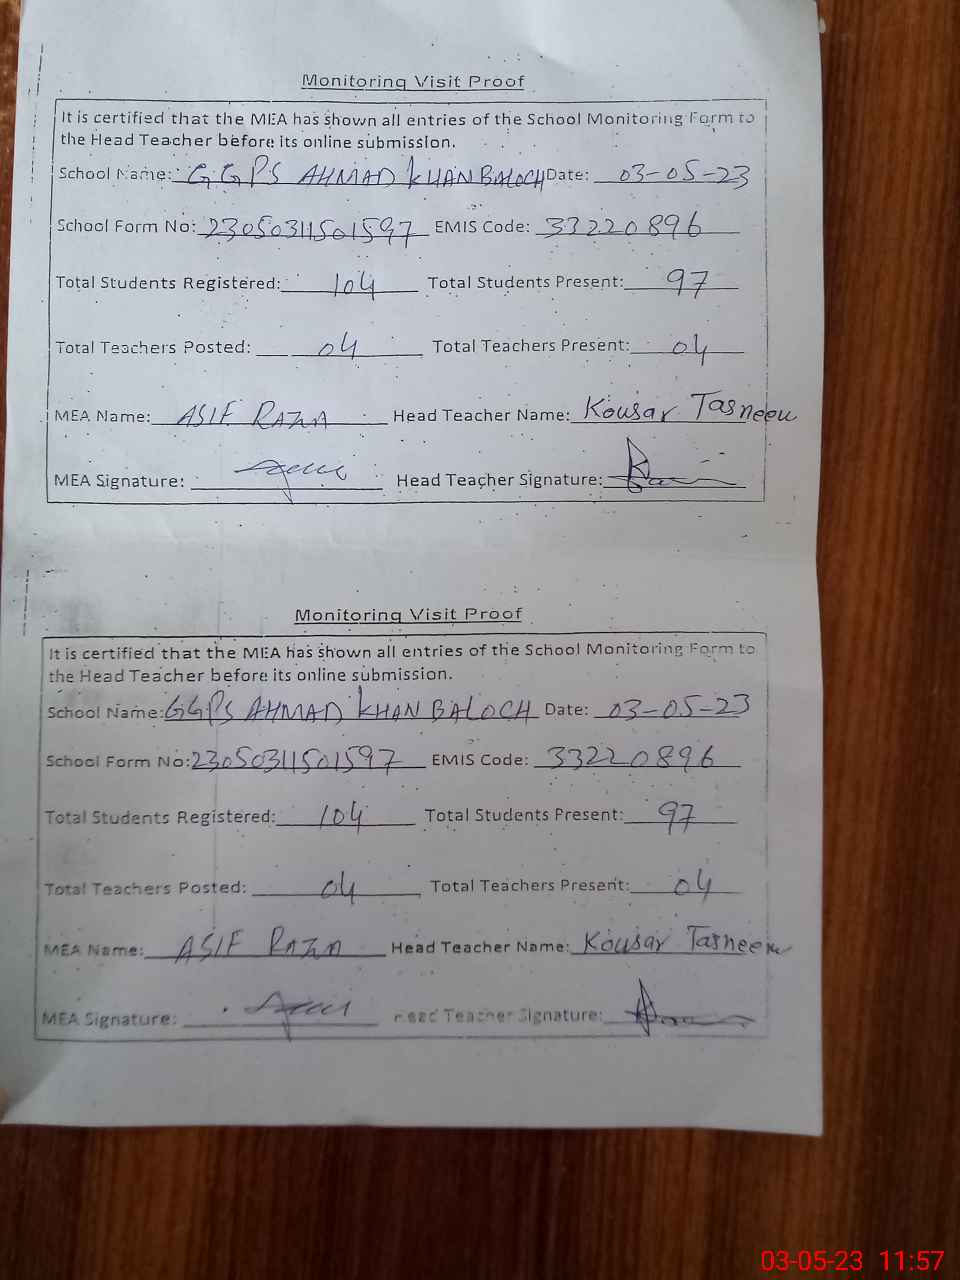 Monitoring Visit Proof
It is certified that the MEA has shown all entries of the School Monitoring Form to
the Head Teacher before its online submission.
School Name: GGPS AHMAD KHAN BALOCH Date: 03-05-23
School Form No: 23050311501597 EMIS Code: 33220896
Total Students Registered: 104 Total Students Present: 97
Total Teachers Posted: 04 Total Teachers Present: 04
MEA Name: ASIF RAZA Head Teacher Name: Kousar Tasneem
MEA Signature: Head Teacher Signature:
Monitoring Visit Proof
It is certified that the MEA has shown all entries of the School Monitoring Form to
the Head Teacher before its online submission.
School Name: GGPS AHMAD KHAN BALOCH Date: 03-05-23
School Form No: 23050311501597 EMIS Code: 33220896
Total Students Registered: 104 Total Students Present: 97
Total Teachers Posted: 04 Total Teachers Present: 04
MEA Name: ASIF RAZA Head Teacher Name: Kousar Tasneem
MEA Signature: Head Teacher Signature:
03-05-23 11:57